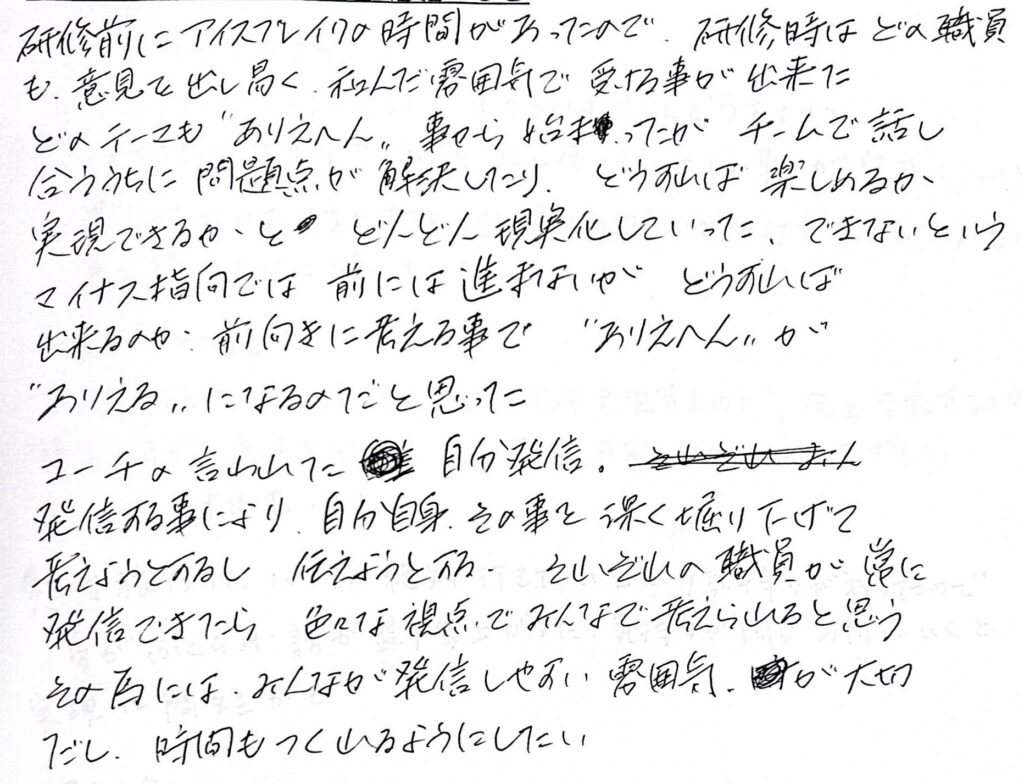 研修前にアイスブレイクの時間があったので、研修時はどの職員
も、意見を出し易く、和んだ雰囲気で受ける事が出来た
どのテーマも〝ありえへん〟事から始まったが チームで話し
合ううちに 問題点が解決したり、どうすれば楽しめるか、
実現できるか、と どんどん現実化していった、できないという
マイナス指向では 前には進まないが どうすれば
出来るのか、前向きに考える事で 〝ありえへん〟が
〝ありえる〟になるのだと思った
コーチの言われた 自分発信。
発信する事により、自分自身、その事を深く堀り下げて
考えようとするし 伝えようとする。それぞれの職員が常に
発信できたら 色々な視点でみんなで考えられると思う
その為には、みんなが発信しやすい雰囲気、が大切
だし、時間もつくれるようにしたい